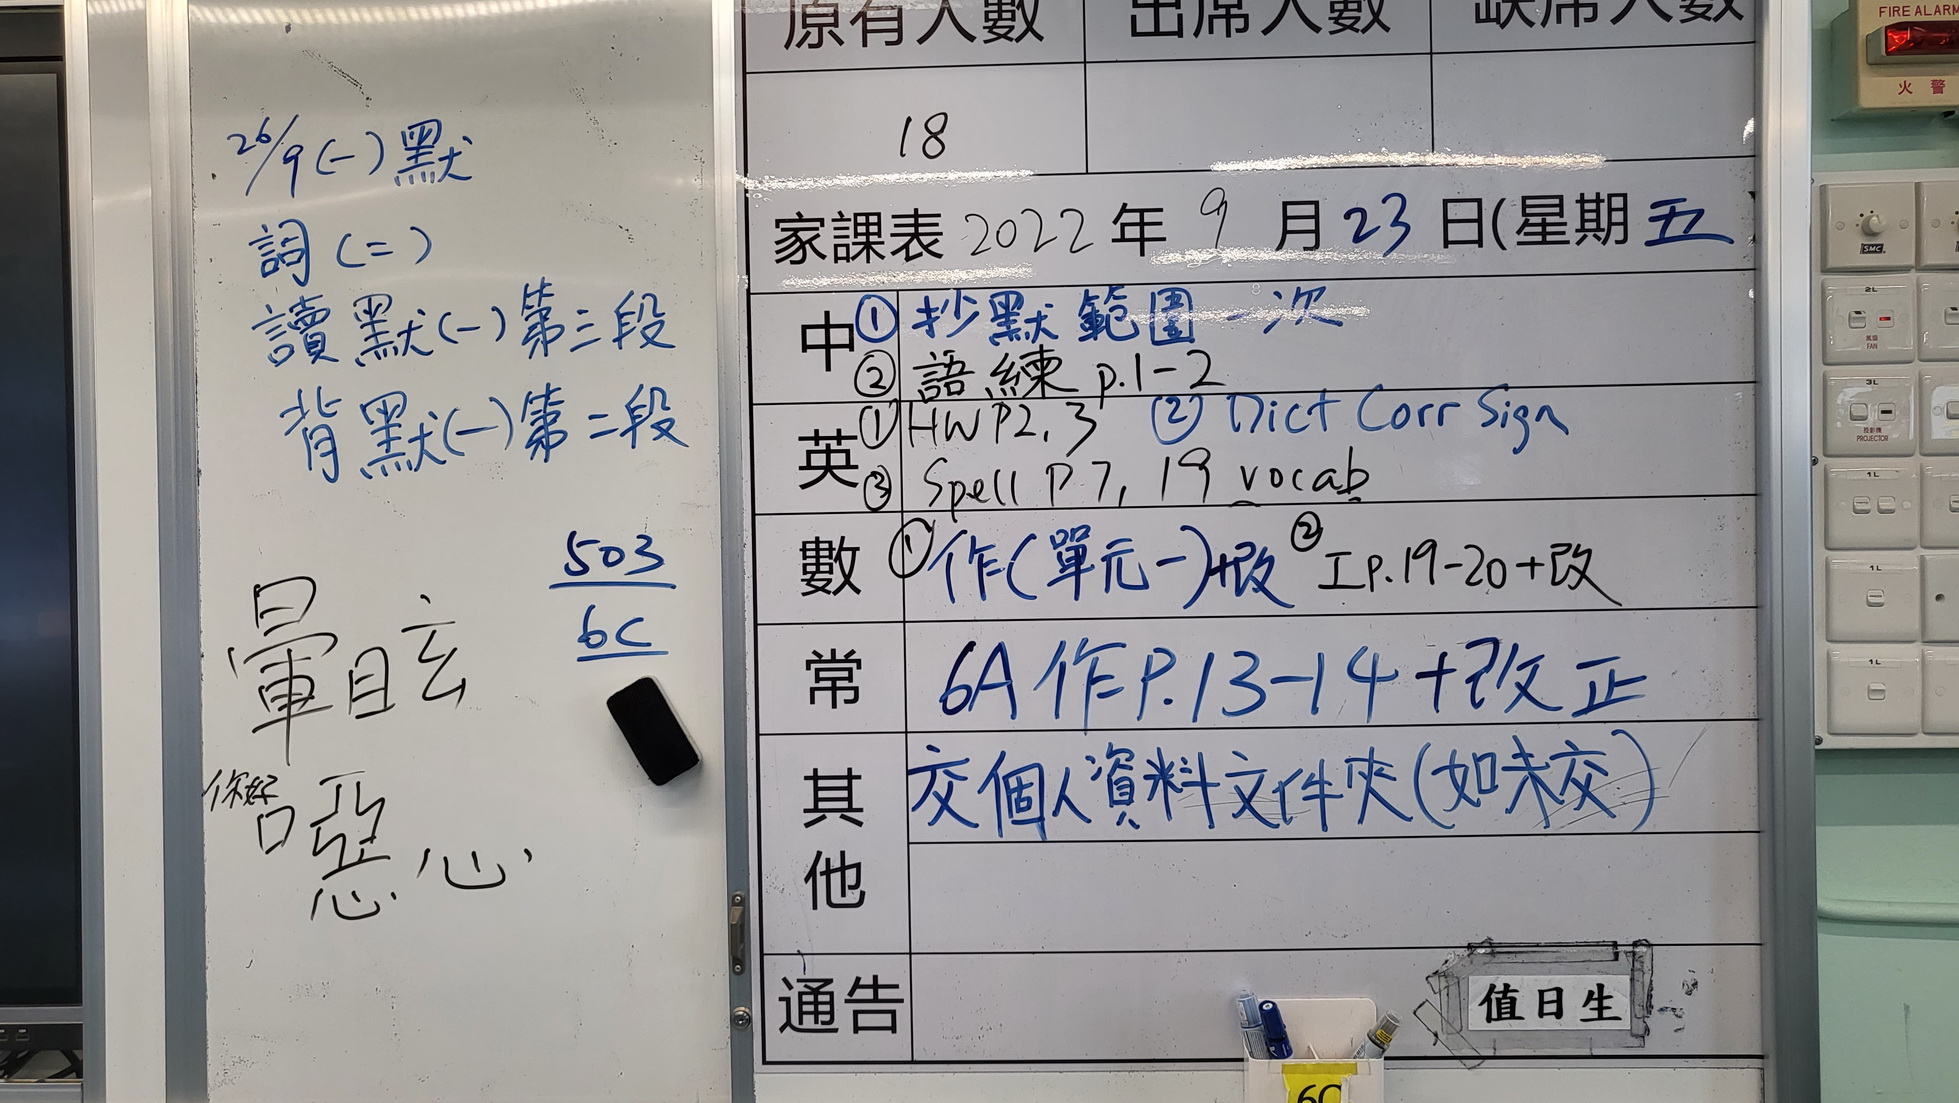 26/9(一)默
詞(二)
讀默(一)第三段
背默(一)第二段
503
6C
暈眩
你好
噁心
原有人數 出席人數 缺席人數
18
家課表 2022 年 9 月 23 日(星期 五
中 ① 抄默範圍一次
② 語練 p.1-2
英 ① HW P2,3 ② Dict Corr Sign
③ Spell P7, 19 vocab
數 ① 作(單元一)+改 ② 工p.19-20+改
常 6A作P.13-14+改正
其他 交個人資料文件夾(如未交)
通告
值日生
6C
FIRE ALARM
火警
SMC
2L
風扇
FAN
3L
投影機
PROJECTOR
1L
1L
1L